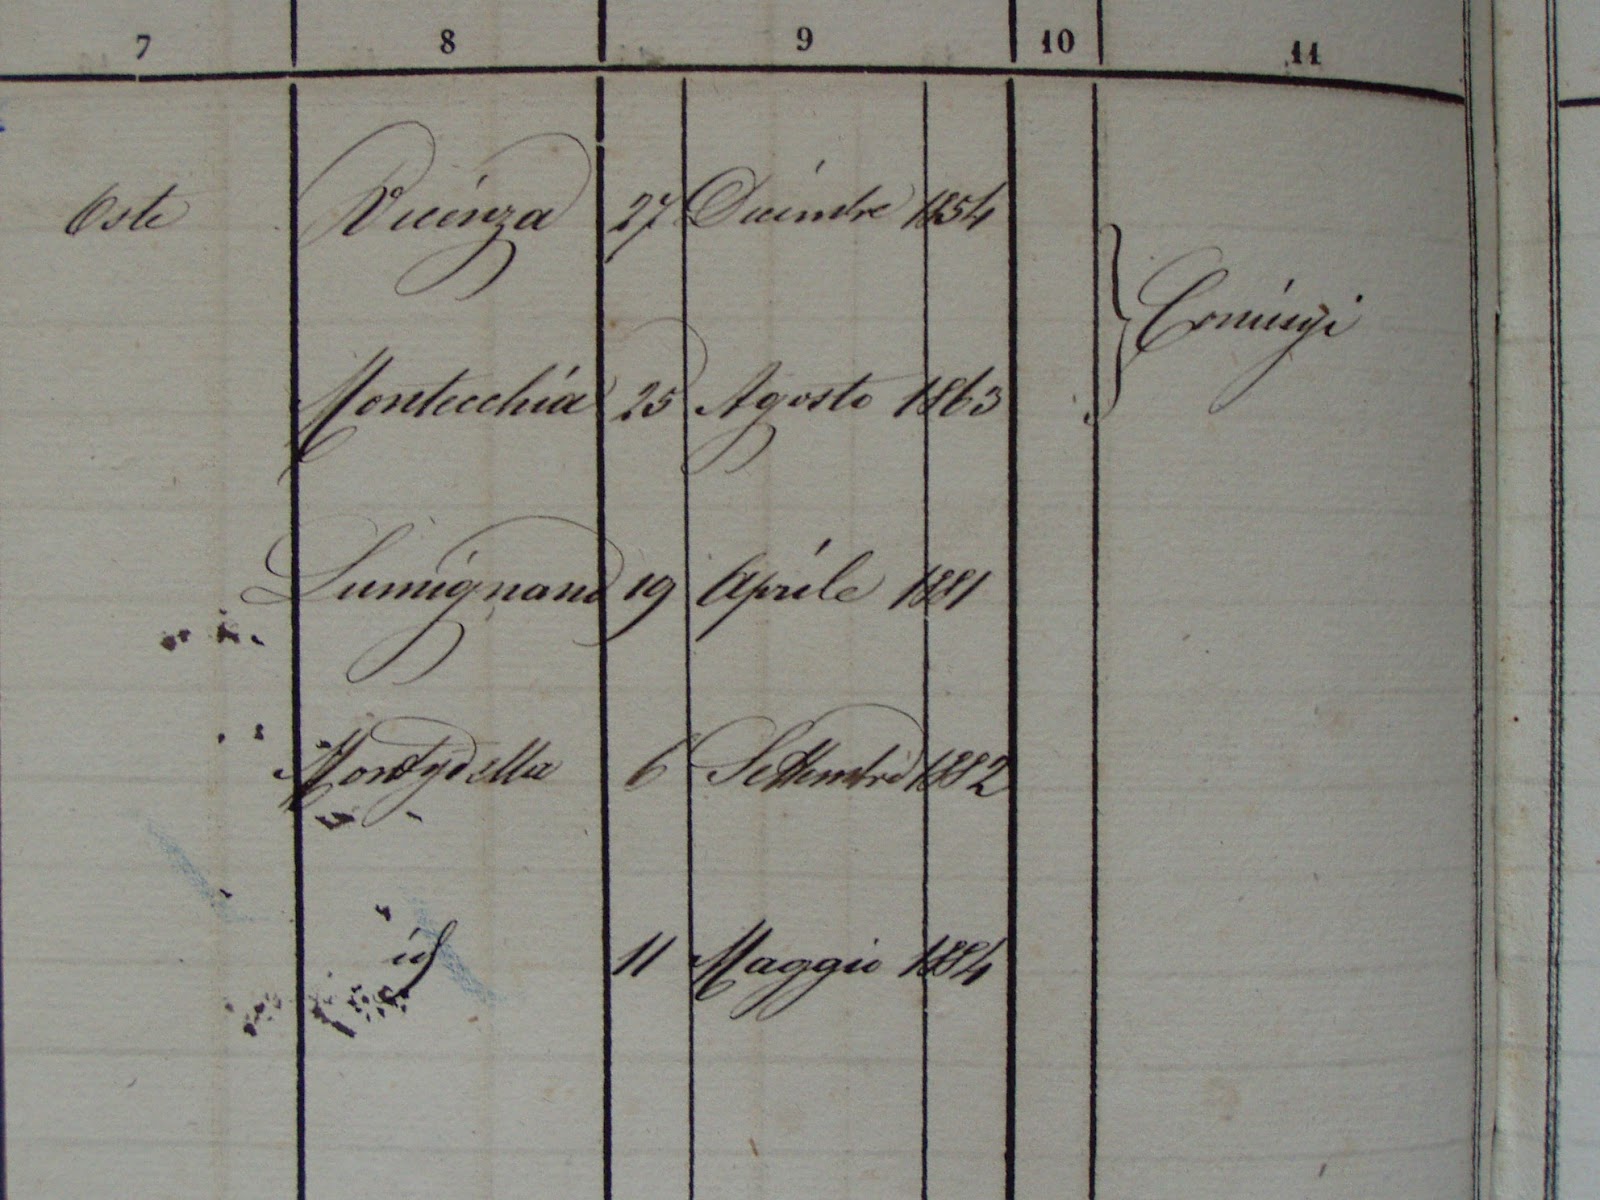 7 8 9 10 11
Oste Vicenza 27 Dicembre 1854
Coniugi
Montecchia 25 Agosto 1863
Lumignano 19 Aprile 1881
6 Settembre 1882
id 11 Maggio 1884